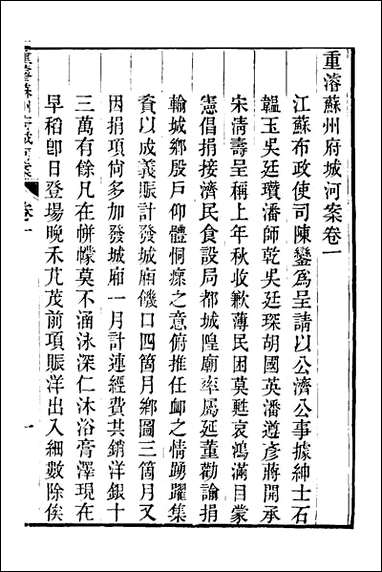 重濬蘇州府城河案卷一
江蘇布政使司陳鑾爲呈請以公濟公事據紳士石
韞玉吳廷瓚潘師乾吳廷琛胡國英潘遵彥蔣開承
宋清壽呈稱上年秋收歉薄民困莫甦哀鴻滿目蒙
憲倡捐接濟民食設局都城隍廟率屬延董勸諭捐
輸城鄉殷戶仰體恫瘝之意俯推任卹之情踴躍集
貲以成義賑計發城廂饑口四箇月鄉圖三箇月又
因捐項尙多加發城廂一月計連經費共銷洋銀十
三萬有餘凡在帡幪莫不涵泳深仁沐浴膏澤現在
早稻卽日登場晚禾芃茂前項賑洋出入細數除俟
重濬蘇州府城河案
卷一
一